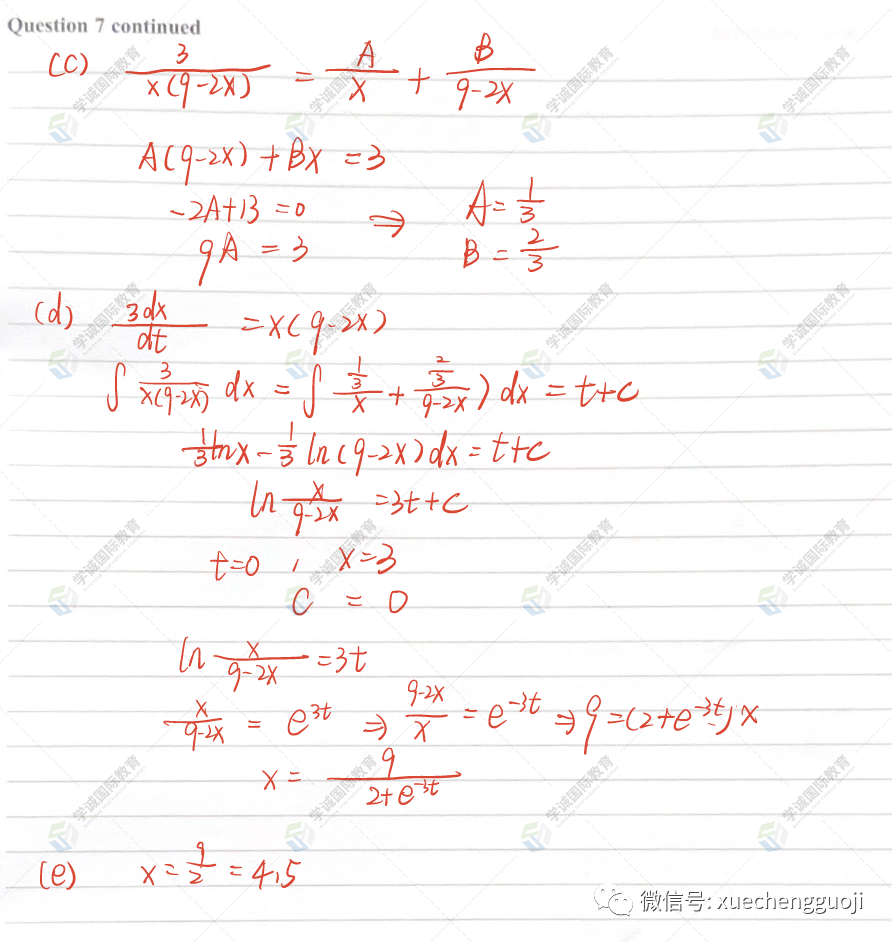 Question 7 continued
(c) 3/x(9-2x) = A/x + B/9-2x
A(9-2x) + Bx = 3
-2A+B = 0 ⇒ A = 1/3
9A = 3 B = 2/3
(d) 3dx/dt = x(9-2x)
∫ 3/x(9-2x) dx = ∫ (1/3)/x + (2/3)/9-2x ) dx = t+c
1/3 lnx - 1/3 ln(9-2x) dx = t+c
ln x/9-2x = 3t+c
t=0 , x=3
C = 0
ln x/9-2x = 3t
x/9-2x = e^3t ⇒ 9-2x/x = e^-3t ⇒ 9 = (2+e^-3t) x
x = 9/2+e^-3t
(e) x = 9/2 = 4.5
微信号: xuechengguoji
学诚国际教育